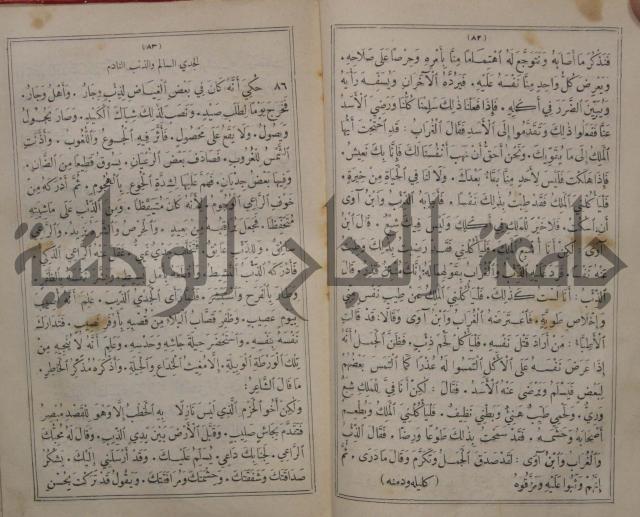 (٨٢)
فنذكر ما أصابه ونتوجع له اهتماما منا بأمره وحرصا على صلاحه .
ويعرض كل واحد منا نفسه عليه . فيرده الآخران ويسفه رأيه
ويبين الضرر في أكله . فإذا فعلنا ذلك سلمنا كلنا ورضي الأسد
عنا ففعلوا ذلك وتقدموا إلى الأسد فقال الغراب : قد احتجت أيها
الملك إلى ما يقويك . ونحن أحق أن نهب أنفسنا لك فإنا بك نعيش .
فإذا هلكت فليس لأحد منا بقاء بعدك . ولا لنا في الحياة من خيرة .
فليأكلني الملك فقد طبت بذلك نفسا . فأجابه الذئب وابن آوى
أن اسكت . فلا خير للملك في أكلك وليس فيك شبع . قال ابن
آوى : لكن أنا أشبع الملك . فليأكلني فقد رضيت بذلك وطبت
عنه نفسا . فرد عليه الذئب والغراب بقولهما له : إنك منتن قذر . قال
الذئب : أنا لست كذلك . فليأكلني الملك عن طيب نفس مني
وإخلاص طوية . فاعترضه الغراب وابن آوى وقالا : قد قالت
الأطباء : من أراد قتل نفسه . فليأكل لحم ذئب . فظن الجمل أنه
إذا عرض نفسه على الأكل التمسوا له عذرا كما التمس بعضهم
لبعض فيسلم ويرضى عنه الأسد . فقال : لكن أنا في للملك شبع
وري . ولحمي طيب هني وبطني نظيف . فليأكلني الملك ويطعم
أصحابه وحشمه . فقد سمحت بذلك طوعا ورضا . فقال الذئب
والغراب وابن آوى : لقد صدق الجمل وتكرم وقال ما درى . ثم
إنهم وثبوا عليه ومزقوه (كليله ودمنه)
(٨٣)
لجدي السالم والذئب النادم
٨٦ حكي أنه كان في بعض الغياض لذئب وجار . وأهل وجار .
فخرج يوما لطلب صيد . ونصب لذلك شباك الكيد . وصار يجول
ويصول . ولا يقع على محصول . فأثر فيه الجوع واللغوب . وأذنت
الشمس للغروب . فصادف بعض الرعيان . يسوق قطيعا من الضان .
وفيها بعض جديان . فهم عليها لشدة الجوع بالهجوم . ثم أدركه من
خوف الراعي الوجوم لأنه كان متيقظا . ومن الذئب على ماشيته
متحفظا . فجعل يراقبه من بعيد . والحرص والشره يزيد . والراعي
فأدركه الذئب النشيط .
وطار بالفرح واستبشر . فلما رأى الجدي الذيب . علم أنه أصيب
بيوم عصيب . وظفر قصاب البلاء من قصبه بأوفر نصيب . فتدارك
نفسه بنفسه . واستحضر حيلة جأشه وحدسه . وعلم أنه لا ينجيه من
تلك الورطة الوبيلة . إلا مغيث الخداع والحيلة . وأذكره مذكر الخاطر .
ما قال الشاعر :
ولكن أخو الحزم الذي ليس نازلا به الخطب إلا وهو للقصد مبصر
فتقدم بجاش صليب . وقبل الأرض بين يدي الذئب . وقال له محبك
الراعي . لجنابك داعي . يسلم عليك . وقد أرسلني إليك . يشكر
صداقتك وشفقتك . وحشمتك ومرافقتك . ويقول قد تركت بحسن
جامعة النجاح الوطنية